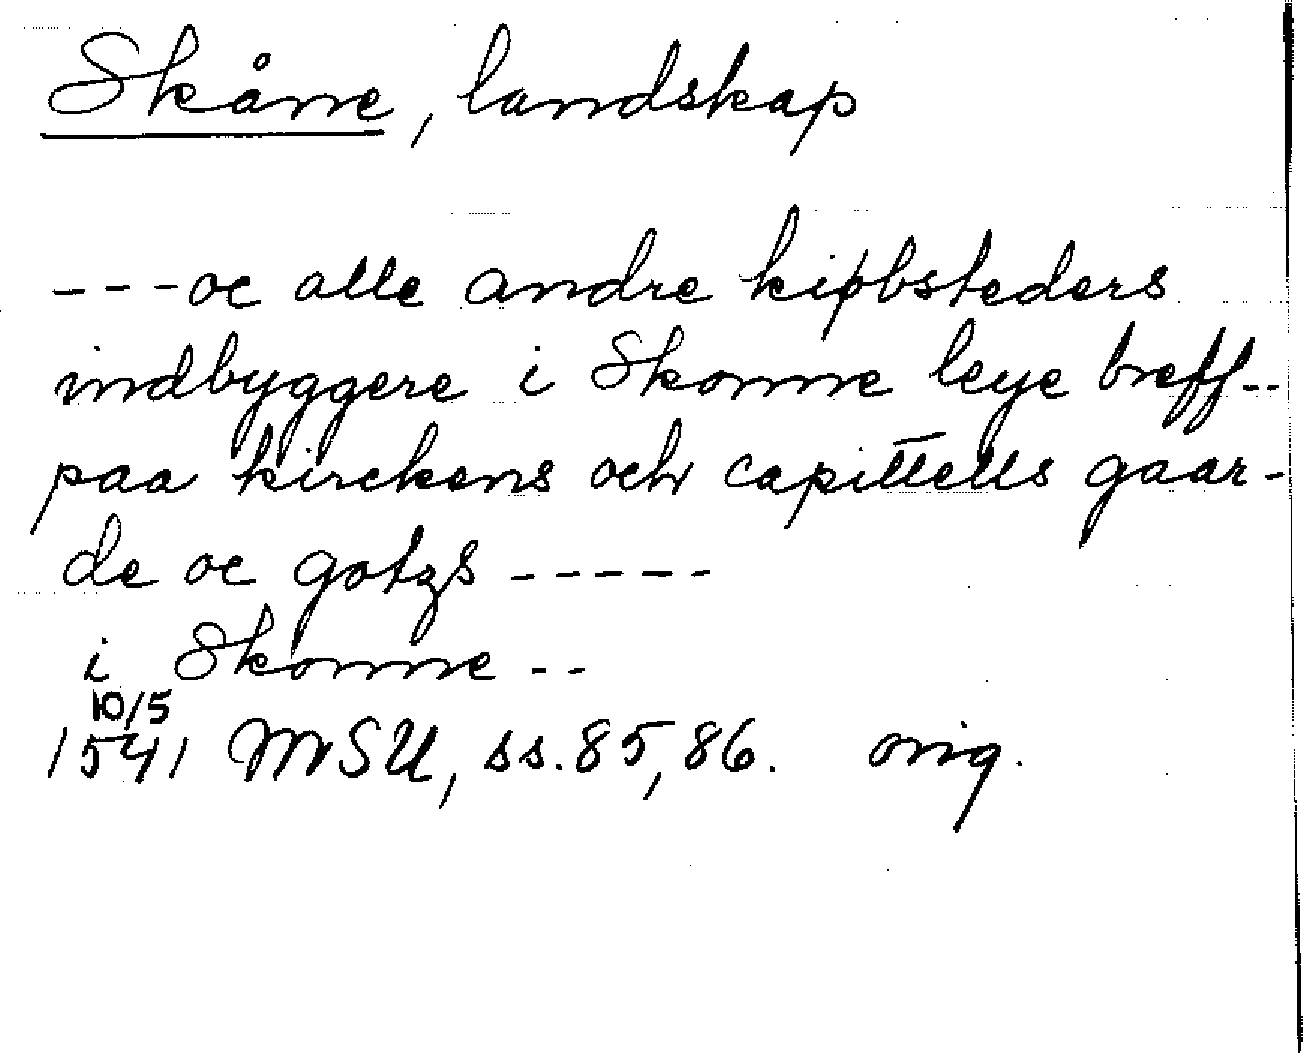 Skåne, landskap
---oc alle andre kiøbsteders
indbyggere i Skonne leye breff--
paa kirckens och capittells gaar-
de oc gotzs -----
i Skonne --
10/5
1541 MSU, ss. 85, 86. orig.